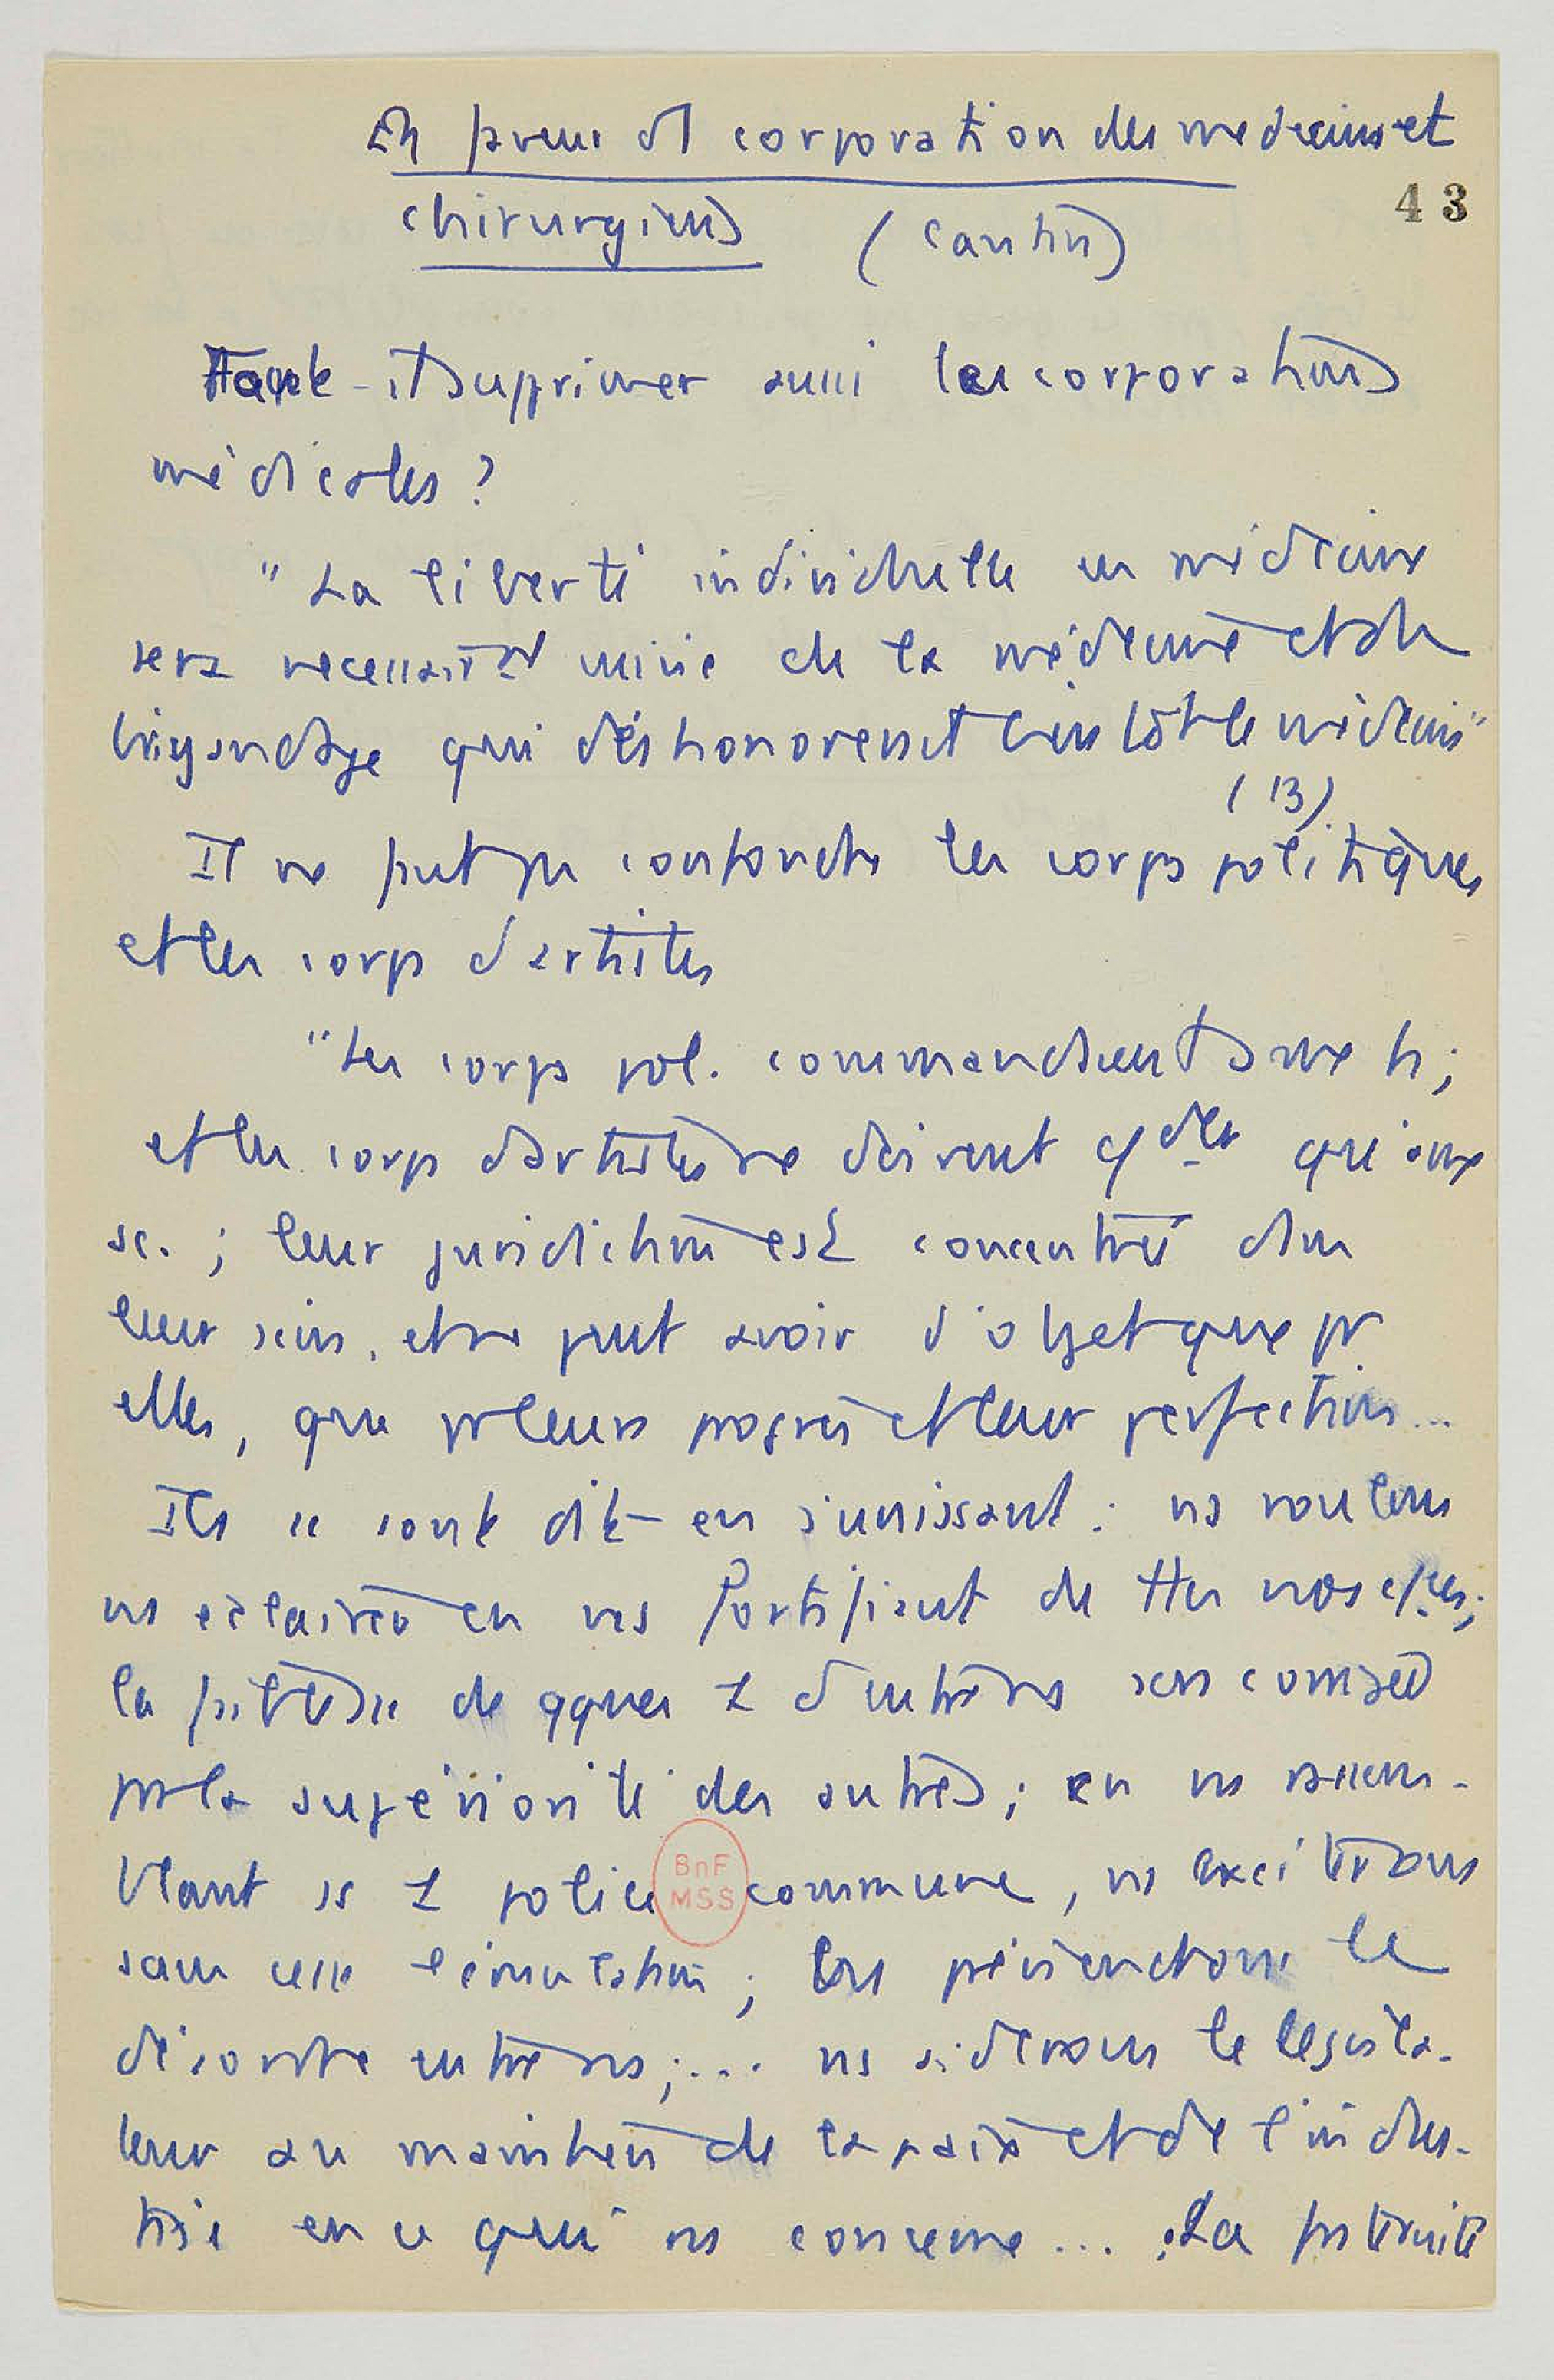 En faveur de corporation des medecins et
43
chirurgiens (Cantin)
Faut-il supprimer aussi les corporations
médicales ?
"La liberté individuelle en médecine
sera necessairt de la médecine et du
brigandage qui déshonorerait bientôt le médecin"
(13)
Il ne faut pas confondre les corps politiques
et les corps d'artistes
"Les corps pol. commandent aux h ;
et les corps d'artistes ne doivent qu'aux
sc. ; leur juridiction est concentrée dans
leur sein, et ne peut avoir d'objet que pr
elles, que pr leurs progrès et leur perfection...
Ils se sont dit en s'unissant : ns voulons
ns éclairer en ns fortifiant de ttes nos
la de qques d'entre ns compensée
pr la supériorité des autres ; en ns rassem-
blant ss police commune, ns exciterons
BnF
MSS
sans cesse l'émulation ; ns préviendrons le
désordre entre ns ;... ns aiderons le législa-
teur au maintien de la paix et de l'indus-
trie en ce qui ns concerne... La